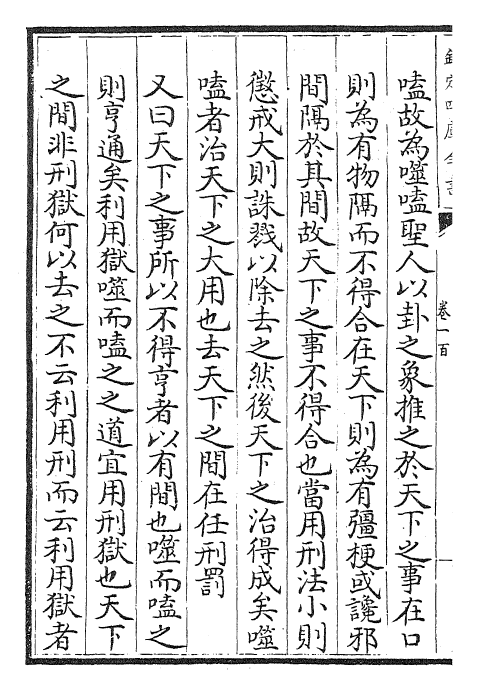 欽定四庫全書
卷一百
嗑故為噬嗑聖人以卦之象推之於天下之事在口
則為有物隔而不得合在天下則為有彊梗或讒邪
間隔於其間故天下之事不得合也當用刑法小則
懲戒大則誅戮以除去之然後天下之治得成矣噬
嗑者治天下之大用也去天下之間在任刑罰
又曰天下之事所以不得亨者以有間也噬而嗑之
則亨通矣利用獄噬而嗑之之道宜用刑獄也天下
之間非刑獄何以去之不云利用刑而云利用獄者